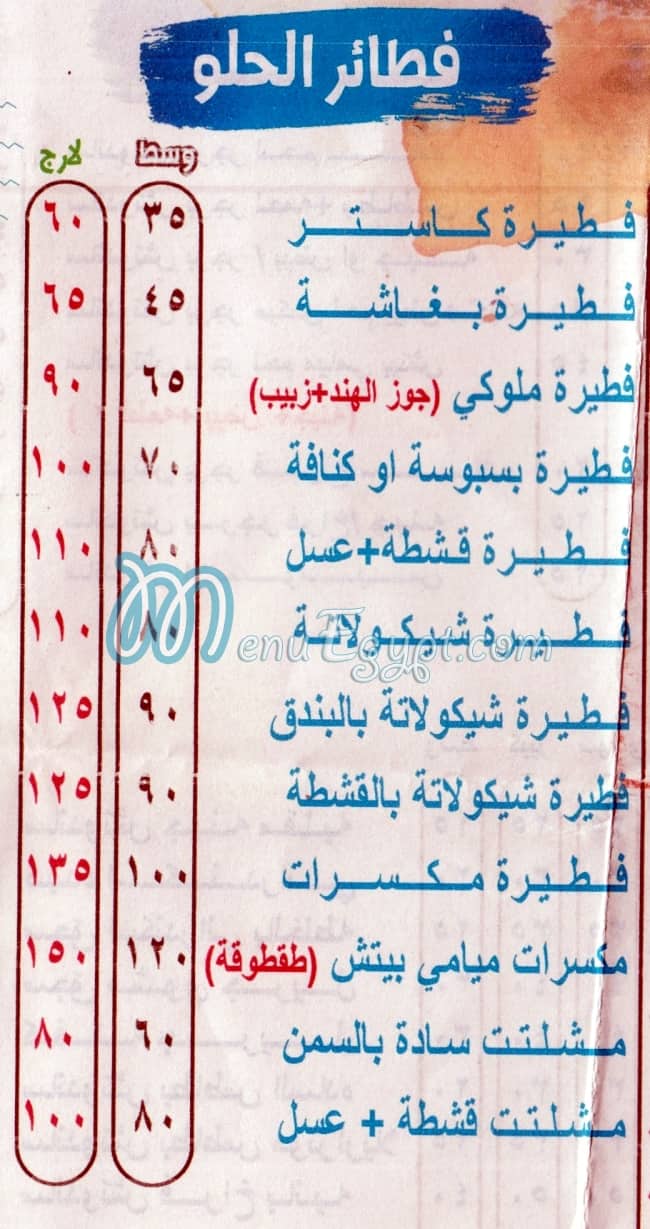 فطائر الحلو
وسط لارج
فطيرة كاستر ٣٥ ٦٠
فطيرة بغاشة ٤٥ ٦٥
فطيرة ملوكي (جوز الهند+زبيب) ٦٥ ٩٠
فطيرة بسبوسة او كنافة ٧٠ ١٠٠
فطيرة قشطة+عسل ٨٠ ١١٠
فطيرة شيكولاتة ٨٠ ١١٠
MenuEgypt.com
فطيرة شيكولاتة بالبندق ٩٠ ١٢٥
فطيرة شيكولاتة بالقشطة ٩٠ ١٢٥
فطيرة مكسرات ١٠٠ ١٣٥
مكسرات ميامي بيتش (طقطوقة) ١٢٠ ١٥٠
مشلتت سادة بالسمن ٦٠ ٨٠
مشلتت قشطة + عسل ٨٠ ١٠٠